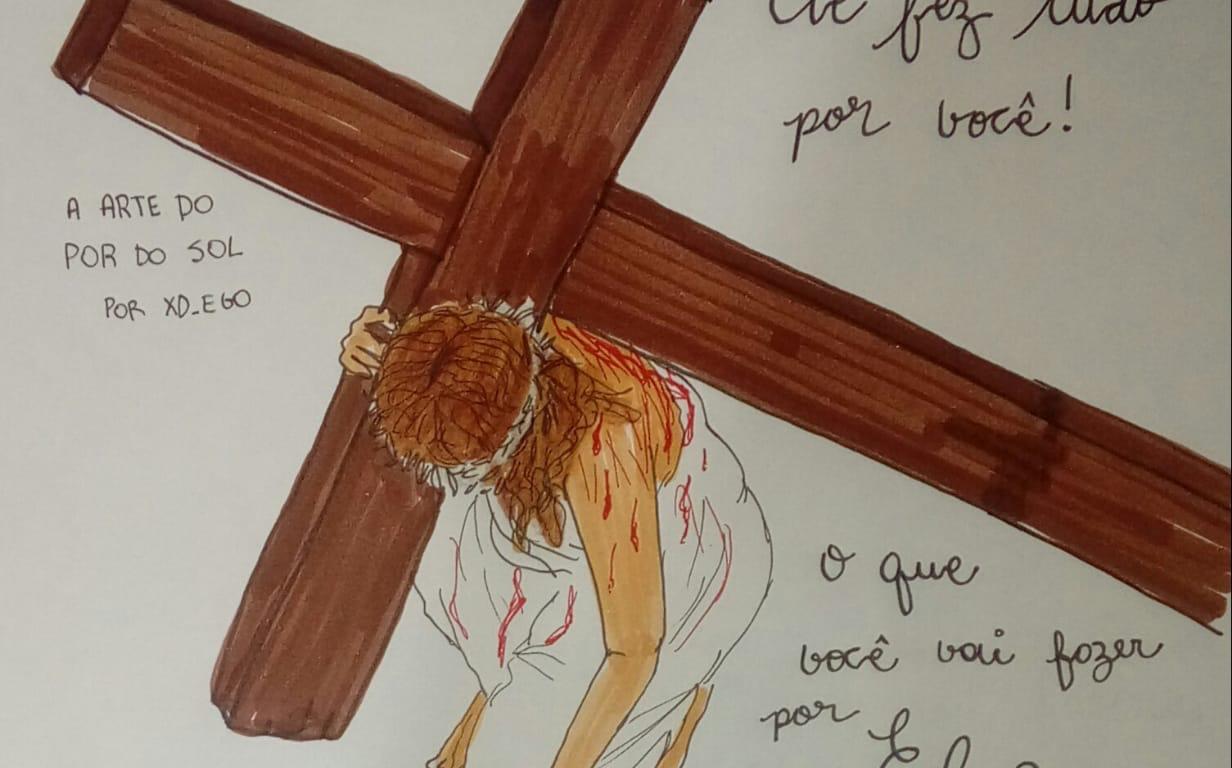 Ele fez tudo
por você!
A ARTE DO
POR DO SOL
POR XD_EGO
O que
você vai fazer
por